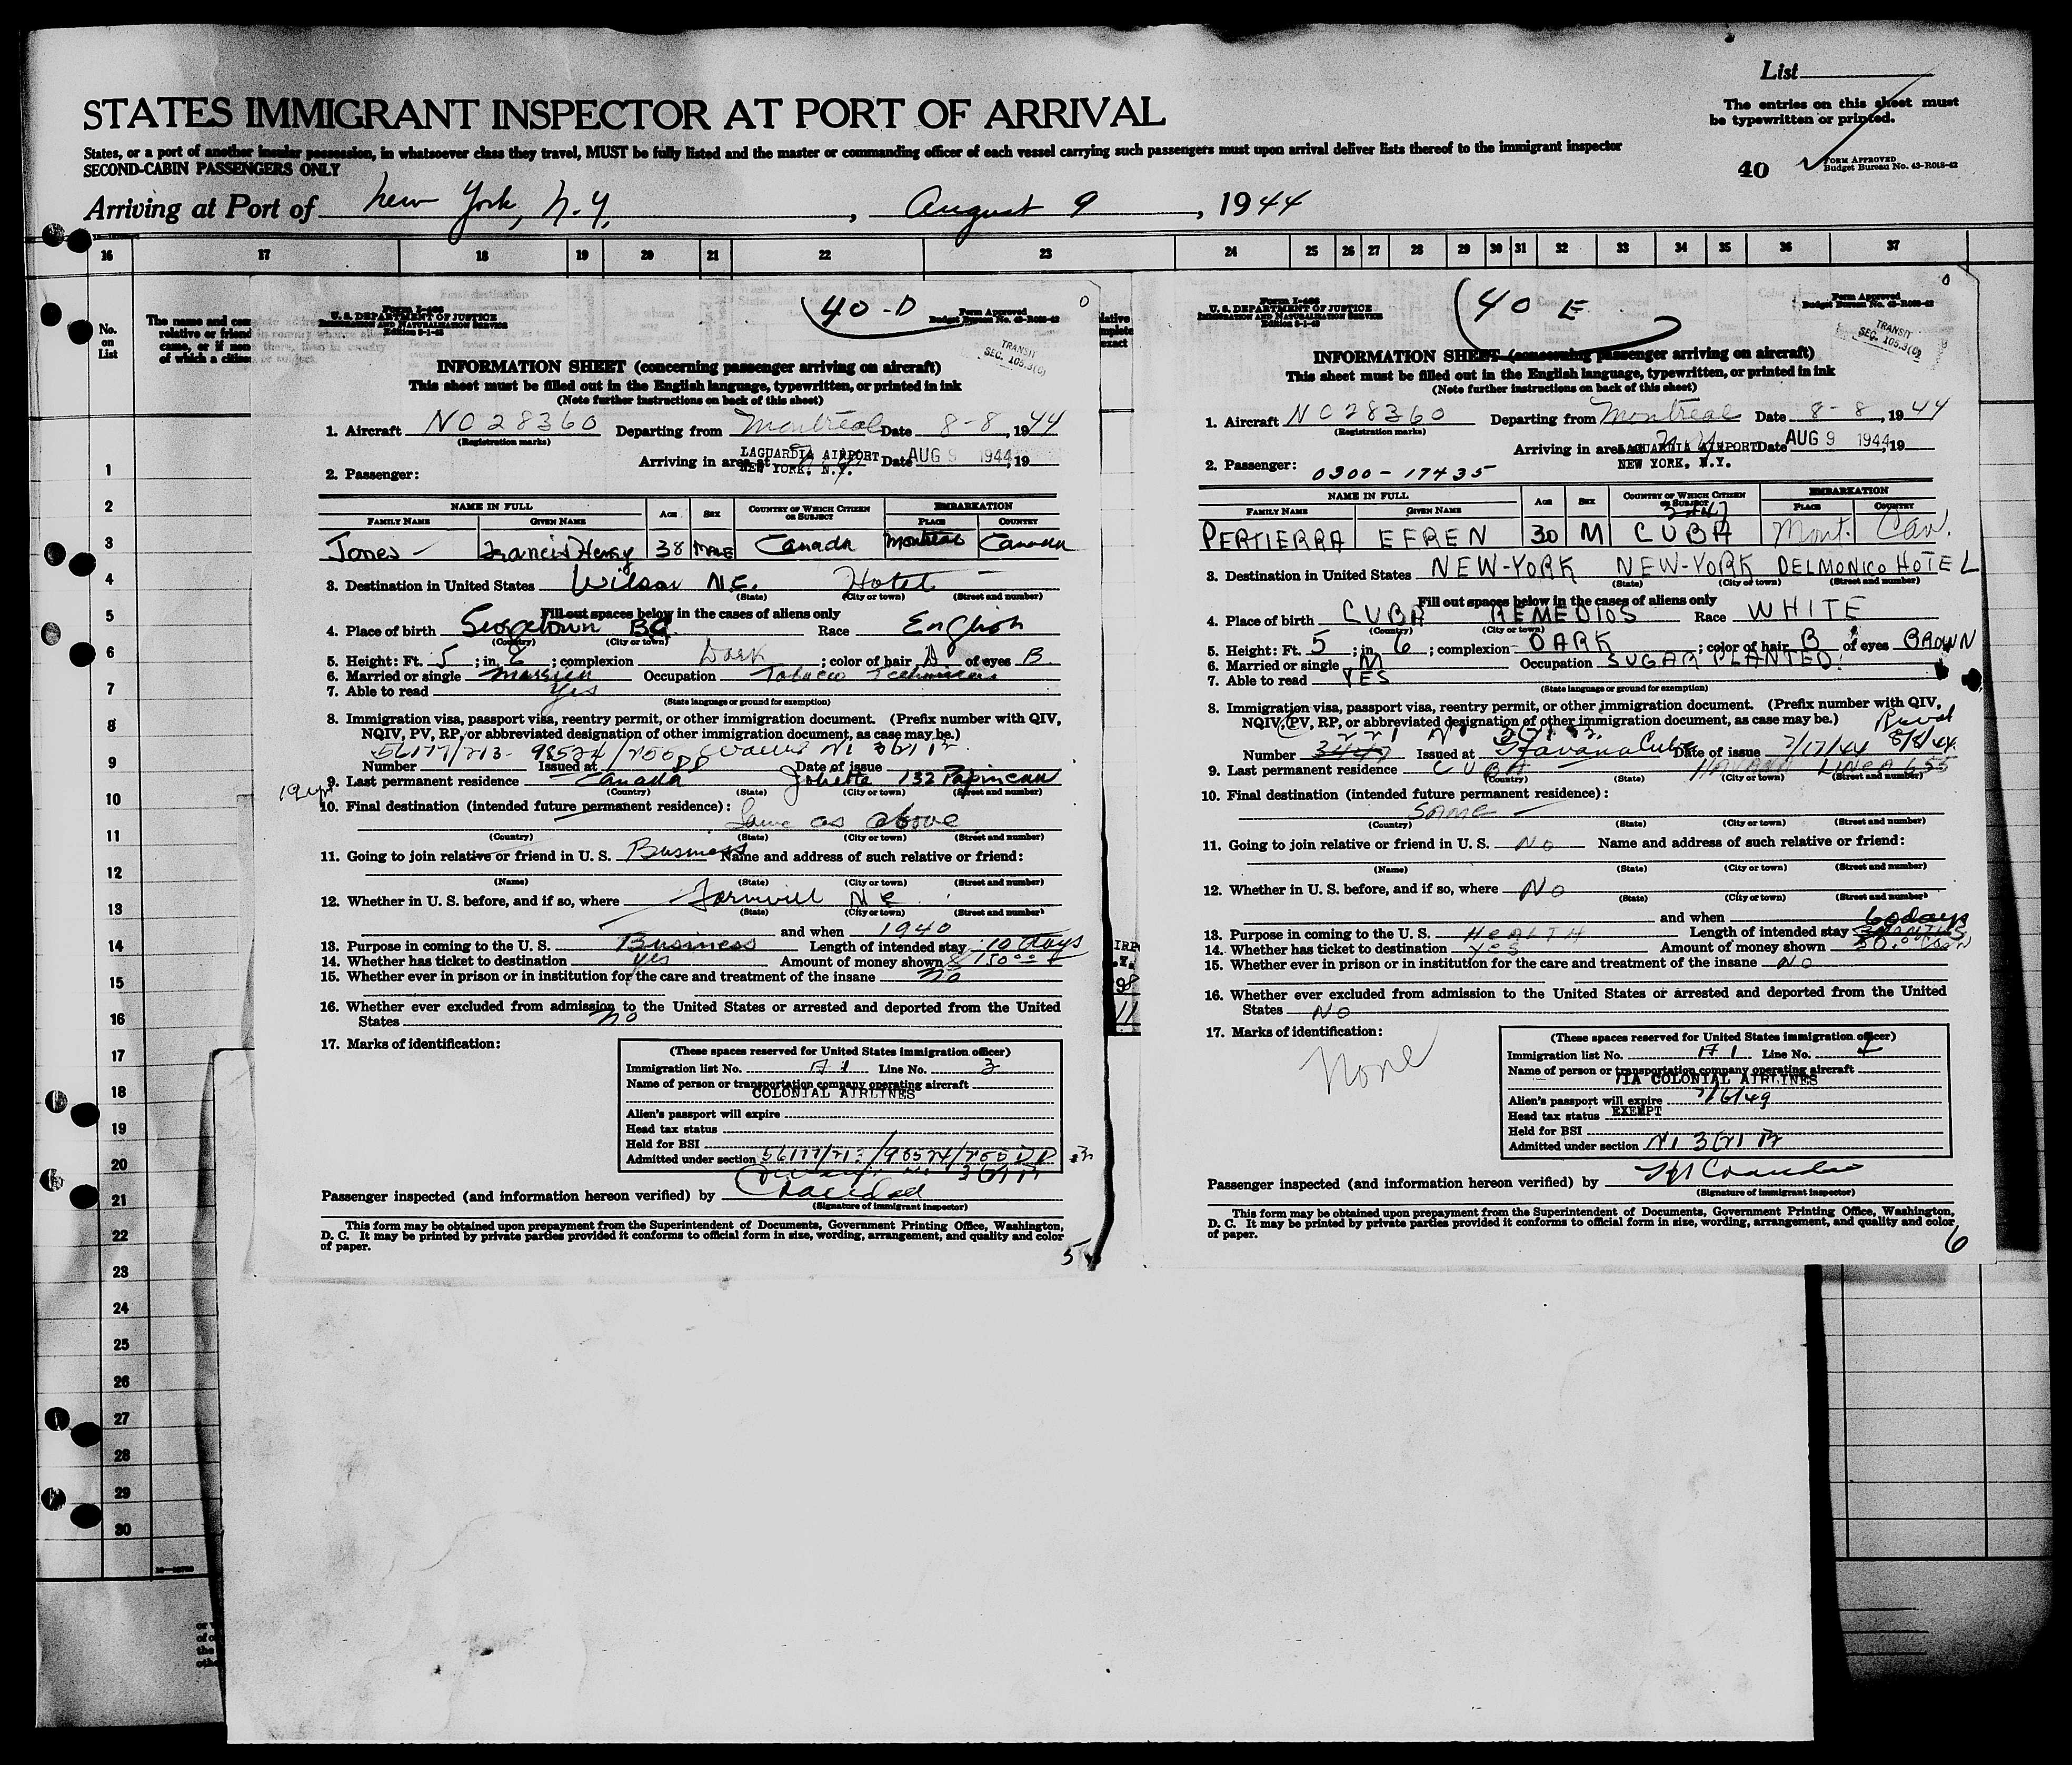 List
The entries on this sheet must
be typewritten or printed.
STATES IMMIGRANT INSPECTOR AT PORT OF ARRIVAL
States, or a port of another insular possession, in whatsoever class they travel, MUST be fully listed and the master or commanding officer of each vessel carrying such passengers must upon arrival deliver lists thereof to the immigrant inspector
SECOND-CABIN PASSENGERS ONLY
40
FORM APPROVED
Budget Bureau No. 43-R018-42
Arriving at Port of New York, N.Y., August 9, 1944
16 17 18 19 20 21 22 23 24 25 26 27 28 29 30 31 32 33 34 35 36 37
No.
on
List
The name and com
relative or friend
came, or if none
of which a citizen
1
2
3
4
5
6
7
8
9
10
11
12
13
14
15
16
17
18
19
20
21
22
23
24
25
26
27
28
29
30
Form I-466
U. S. DEPARTMENT OF JUSTICE
IMMIGRATION AND NATURALIZATION SERVICE
Edition 8-1-42
40-D
Form Approved
Budget Bureau No. 43-R088-42
0
TRANSIT
SEC. 105.3(C)
INFORMATION SHEET (concerning passenger arriving on aircraft)
This sheet must be filled out in the English language, typewritten, or printed in ink
(Note further instructions on back of this sheet)
1. Aircraft NC28360 Departing from Montreal Date 8-8, 1944
(Registration marks)
Arriving in area at LAGUARDIA AIRPORT Date AUG 9 1944, 19
NEW YORK, N.Y.
2. Passenger:
NAME IN FULL AGE SEX COUNTRY OF WHICH CITIZEN OR SUBJECT EMBARKATION
FAMILY NAME GIVEN NAME PLACE COUNTRY
Jones Francis Henry 38 MALE Canada Montreal Canada
3. Destination in United States Wilson N.C. Hotel
(State) (City or town) (Street and number)
Fill out spaces below in the cases of aliens only
4. Place of birth Georgetown BG Race English
(Country) (City or town)
5. Height: Ft. 5; in. ; complexion Dark; color of hair D. of eyes B.
6. Married or single Married Occupation Tobacco Technician
7. Able to read Yes
(State language or ground for exemption)
8. Immigration visa, passport visa, reentry permit, or other immigration document. (Prefix number with QIV,
NQIV, PV, RP, or abbreviated designation of other immigration document, as case may be.)
56177/213- 98524/255
Number Issued at Date of issue
9. Last permanent residence Canada Joliette 132 Papineau
(Country) (State) (City or town) (Street and number)
10. Final destination (intended future permanent residence):
Same as above
(Country) (State) (City or town) (Street and number)
11. Going to join relative or friend in U. S. Business Name and address of such relative or friend:
(Name) (State) (City or town) (Street and number)
12. Whether in U. S. before, and if so, where Farmvill N C
(State) (City or town) (Street and number)
and when 1940
13. Purpose in coming to the U. S. Business Length of intended stay 10 days
14. Whether has ticket to destination yes Amount of money shown $150.00
15. Whether ever in prison or in institution for the care and treatment of the insane no
16. Whether ever excluded from admission to the United States or arrested and deported from the United
States no
17. Marks of identification:
(These spaces reserved for United States immigration officer)
Immigration list No. Line No. 3
Name of person or transportation company operating aircraft
COLONIAL AIRLINES
Alien's passport will expire
Head tax status
Held for BSI
Admitted under section 56177/213/98524/255 DD
Passenger inspected (and information hereon verified) by
(Signature of immigrant inspector)
This form may be obtained upon prepayment from the Superintendent of Documents, Government Printing Office, Washington,
D. C. It may be printed by private parties provided it conforms to official form in size, wording, arrangement, and quality and color
of paper.
5
Form I-466
U. S. DEPARTMENT OF JUSTICE
IMMIGRATION AND NATURALIZATION SERVICE
Edition 8-1-42
40 E
Form Approved
Budget Bureau No. 43-R088-42
0
TRANSIT
SEC. 105.3(C)
INFORMATION SHEET (concerning passenger arriving on aircraft)
This sheet must be filled out in the English language, typewritten, or printed in ink
(Note further instructions on back of this sheet)
1. Aircraft NC28360 Departing from Montreal Date 8-8, 1944
(Registration marks)
Arriving in area LAGUARDIA AIRPORT Date AUG 9 1944, 19
NEW YORK, N.Y.
2. Passenger: 0300-17435
NAME IN FULL AGE SEX COUNTRY OF WHICH CITIZEN OR SUBJECT EMBARKATION
FAMILY NAME GIVEN NAME PLACE COUNTRY
PERTIERRA EFREN 30 M CUBA Mont. Can.
3. Destination in United States NEW-YORK NEW-YORK DELMONICO HOTEL
(State) (City or town) (Street and number)
Fill out spaces below in the cases of aliens only
4. Place of birth CUBA REMEDIOS Race WHITE
(Country) (City or town)
5. Height: Ft. 5; in. 6; complexion DARK; color of hair B of eyes BROWN
6. Married or single M Occupation SUGAR PLANTED
7. Able to read YES
(State language or ground for exemption)
8. Immigration visa, passport visa, reentry permit, or other immigration document. (Prefix number with QIV,
NQIV, PV, RP, or abbreviated designation of other immigration document, as case may be.)
Number 3447 Issued at Havana Cuba Date of issue 7/17/44 8/8/44
9. Last permanent residence CUBA HAVANA LINEA 655
(Country) (State) (City or town) (Street and number)
10. Final destination (intended future permanent residence):
SAME
(Country) (State) (City or town) (Street and number)
11. Going to join relative or friend in U. S. NO Name and address of such relative or friend:
(Name) (State) (City or town) (Street and number)
12. Whether in U. S. before, and if so, where NO
(State) (City or town) (Street and number)
and when
60 days
13. Purpose in coming to the U. S. HEALTH Length of intended stay
14. Whether has ticket to destination YES Amount of money shown
15. Whether ever in prison or in institution for the care and treatment of the insane NO
16. Whether ever excluded from admission to the United States or arrested and deported from the United
States NO
17. Marks of identification:
None
(These spaces reserved for United States immigration officer)
Immigration list No. Line No.
Name of person or transportation company operating aircraft
VIA COLONIAL AIRLINES
Alien's passport will expire 7/6/49
Head tax status EXEMPT
Held for BSI
Admitted under section
Passenger inspected (and information hereon verified) by
(Signature of immigrant inspector)
This form may be obtained upon prepayment from the Superintendent of Documents, Government Printing Office, Washington,
D. C. It may be printed by private parties provided it conforms to official form in size, wording, arrangement, and quality and color
of paper.
6